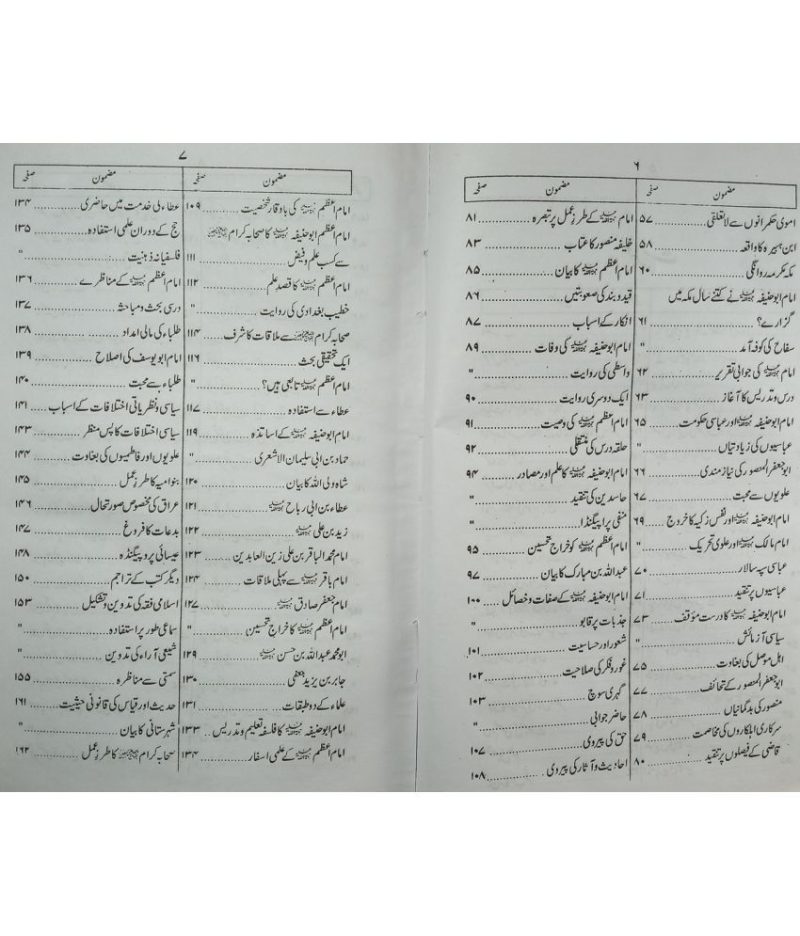 ۶
مضمون صفحہ
اموی حکمرانوں سے لاتعلقی ۵۷
ابن ہبیرہ کا واقعہ ۵۸
مکہ مکرمہ روانگی ۶۰
امام ابو حنیفہ نے کتنے سال مکہ میں
گزارے؟ ۶۱
سفاح کی کوفہ آمد "
امام ابو حنیفہ کی جوابی تقریر ۶۲
درس و تدریس کا آغاز ۶۳
امام ابو حنیفہ اور عباسی حکومت ۶۵
عباسیوں کی زیادتیاں "
ابو جعفر المنصور کی نیاز مندی ۶۶
علویوں سے محبت ۶۷
امام ابو حنیفہ اور نفس زکیہ کا خروج ۶۹
امام مالک اور علوی تحریک "
عباسی سپہ سالار ۷۰
عباسیوں پر تنقید ۷۱
امام ابو حنیفہ کا درست مؤقف ۷۳
سیاسی آزمائش "
اہل موصل کی بغاوت ۷۵
ابو جعفر المنصور کے تحائف ۷۷
منصور کی بدگمانیاں ۷۸
سرکاری اہلکاروں کی مخاصمت ۷۹
قاضی کے فیصلوں پر تنقید ۸۰
مضمون صفحہ
امام کے طرز عمل پر تبصرہ ۸۱
خلیفہ منصور کا عتاب ۸۳
امام اعظم کا بیان ۸۵
قید و بند کی صعوبتیں ۸۶
انکار کے اسباب ۸۷
امام ابو حنیفہ کی وفات ۸۹
واسطی کی روایت "
ایک دوسری روایت ۹۰
امام اعظم کی وصیت ۹۱
حلقہ درس کی منتقلی ۹۲
امام ابو حنیفہ کا علم اور مصادر ۹۴
حاسدین کی تنقید "
منفی پراپیگنڈا "
امام اعظم کو خراج تحسین ۹۵
عبداللہ بن مبارک کا بیان ۹۷
امام ابو حنیفہ کے صفات و خصائل ۱۰۰
جذبات پر قابو "
شعور اور حساسیت ۱۰۱
غور و فکر کی صلاحیت ۱۰۲
گہری سوچ ۱۰۳
حاضر جوابی "
حق کی پیروی ۱۰۷
احادیث و آثار کی پیروی ۱۰۸
۷
مضمون صفحہ
امام اعظم کی باوقار شخصیت ۱۰۹
امام اعظم ابو حنیفہ کا صحابہ کرام
سے کسب علم و فیض ۱۱۱
امام اعظم کا قصد علم ۱۱۲
خطیب بغدادی کی روایت "
صحابہ کرام سے ملاقات کا شرف ۱۱۴
ایک تحقیقی بحث ۱۱۶
امام اعظم تابعی ہیں؟ "
عطاء سے استفادہ ۱۱۷
امام ابو حنیفہ کے اساتذہ ۱۱۹
حماد بن ابی سلیمان الاشعری "
شاہ ولی اللہ کا بیان ۱۲۰
عطاء بن ابی رباح ۱۲۱
زید بن علی ۱۲۲
امام محمد الباقر بن علی زین العابدین ۱۲۳
امام باقر سے پہلی ملاقات ۱۲۴
امام جعفر صادق ۱۲۷
امام اعظم کا خراج تحسین "
ابو محمد عبداللہ بن حسن ۱۲۹
جابر بن یزید جعفی ۱۳۰
علماء کے دو طبقات ۱۳۱
امام ابو حنیفہ کا فلسفہ تعلیم و تدریس ۱۳۳
امام اعظم کے علمی اسفار ۱۳۴
مضمون صفحہ
عطاء کی خدمت میں حاضری ۱۳۴
حج کے دوران علمی استفادہ ۱۳۵
فلسفیانہ ذہنیت "
امام اعظم کے مناظرے ۱۳۶
درسی بحث و مباحث ۱۳۷
طلباء کی مالی امداد ۱۳۸
امام ابو یوسف کی اصلاح ۱۳۹
طلباء سے محبت ۱۴۰
سیاسی و نظریاتی اختلافات کے اسباب ۱۴۱
سیاسی اختلافات کا پس منظر ۱۴۳
علویوں اور فاطمیوں کی بغاوت ۱۴۴
بنوامیہ کا طرز عمل ۱۴۵
عراق کی مخصوص صورتحال ۱۴۶
بدعات کا فروغ ۱۴۷
عیسائی پروپیگنڈہ ۱۴۸
دیگر کتب کے تراجم ۱۵۰
اسلامی فقہ کی تدوین و تشکیل ۱۵۳
سماعی طور پر استفادہ "
شیعی آراء کی تدوین "
سمنی سے مناظرہ ۱۵۵
حدیث اور قیاس کی قانونی حیثیت ۱۶۱
شہرستانی کا بیان "
صحابہ کرام کا طرز عمل ۱۶۲